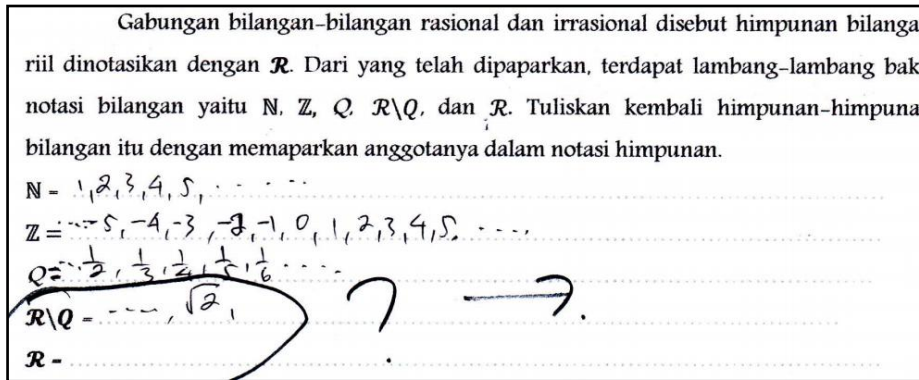 Gabungan bilangan-bilangan rasional dan irrasional disebut himpunan bilanga
riil dinotasikan dengan ℛ. Dari yang telah dipaparkan, terdapat lambang-lambang bak
notasi bilangan yaitu ℕ, ℤ, Q, ℛ\Q, dan ℛ. Tuliskan kembali himpunan-himpuna
bilangan itu dengan memaparkan anggotanya dalam notasi himpunan.
ℕ = 1, 2, 3, 4, 5, ....
ℤ = ... -5, -4, -3, -2, -1, 0, 1, 2, 3, 4, 5, ....
Q = ... 1/2, 1/3, 1/4, 1/5, 1/6 ....
ℛ\Q = ...., √2, ? → ?.
ℛ =